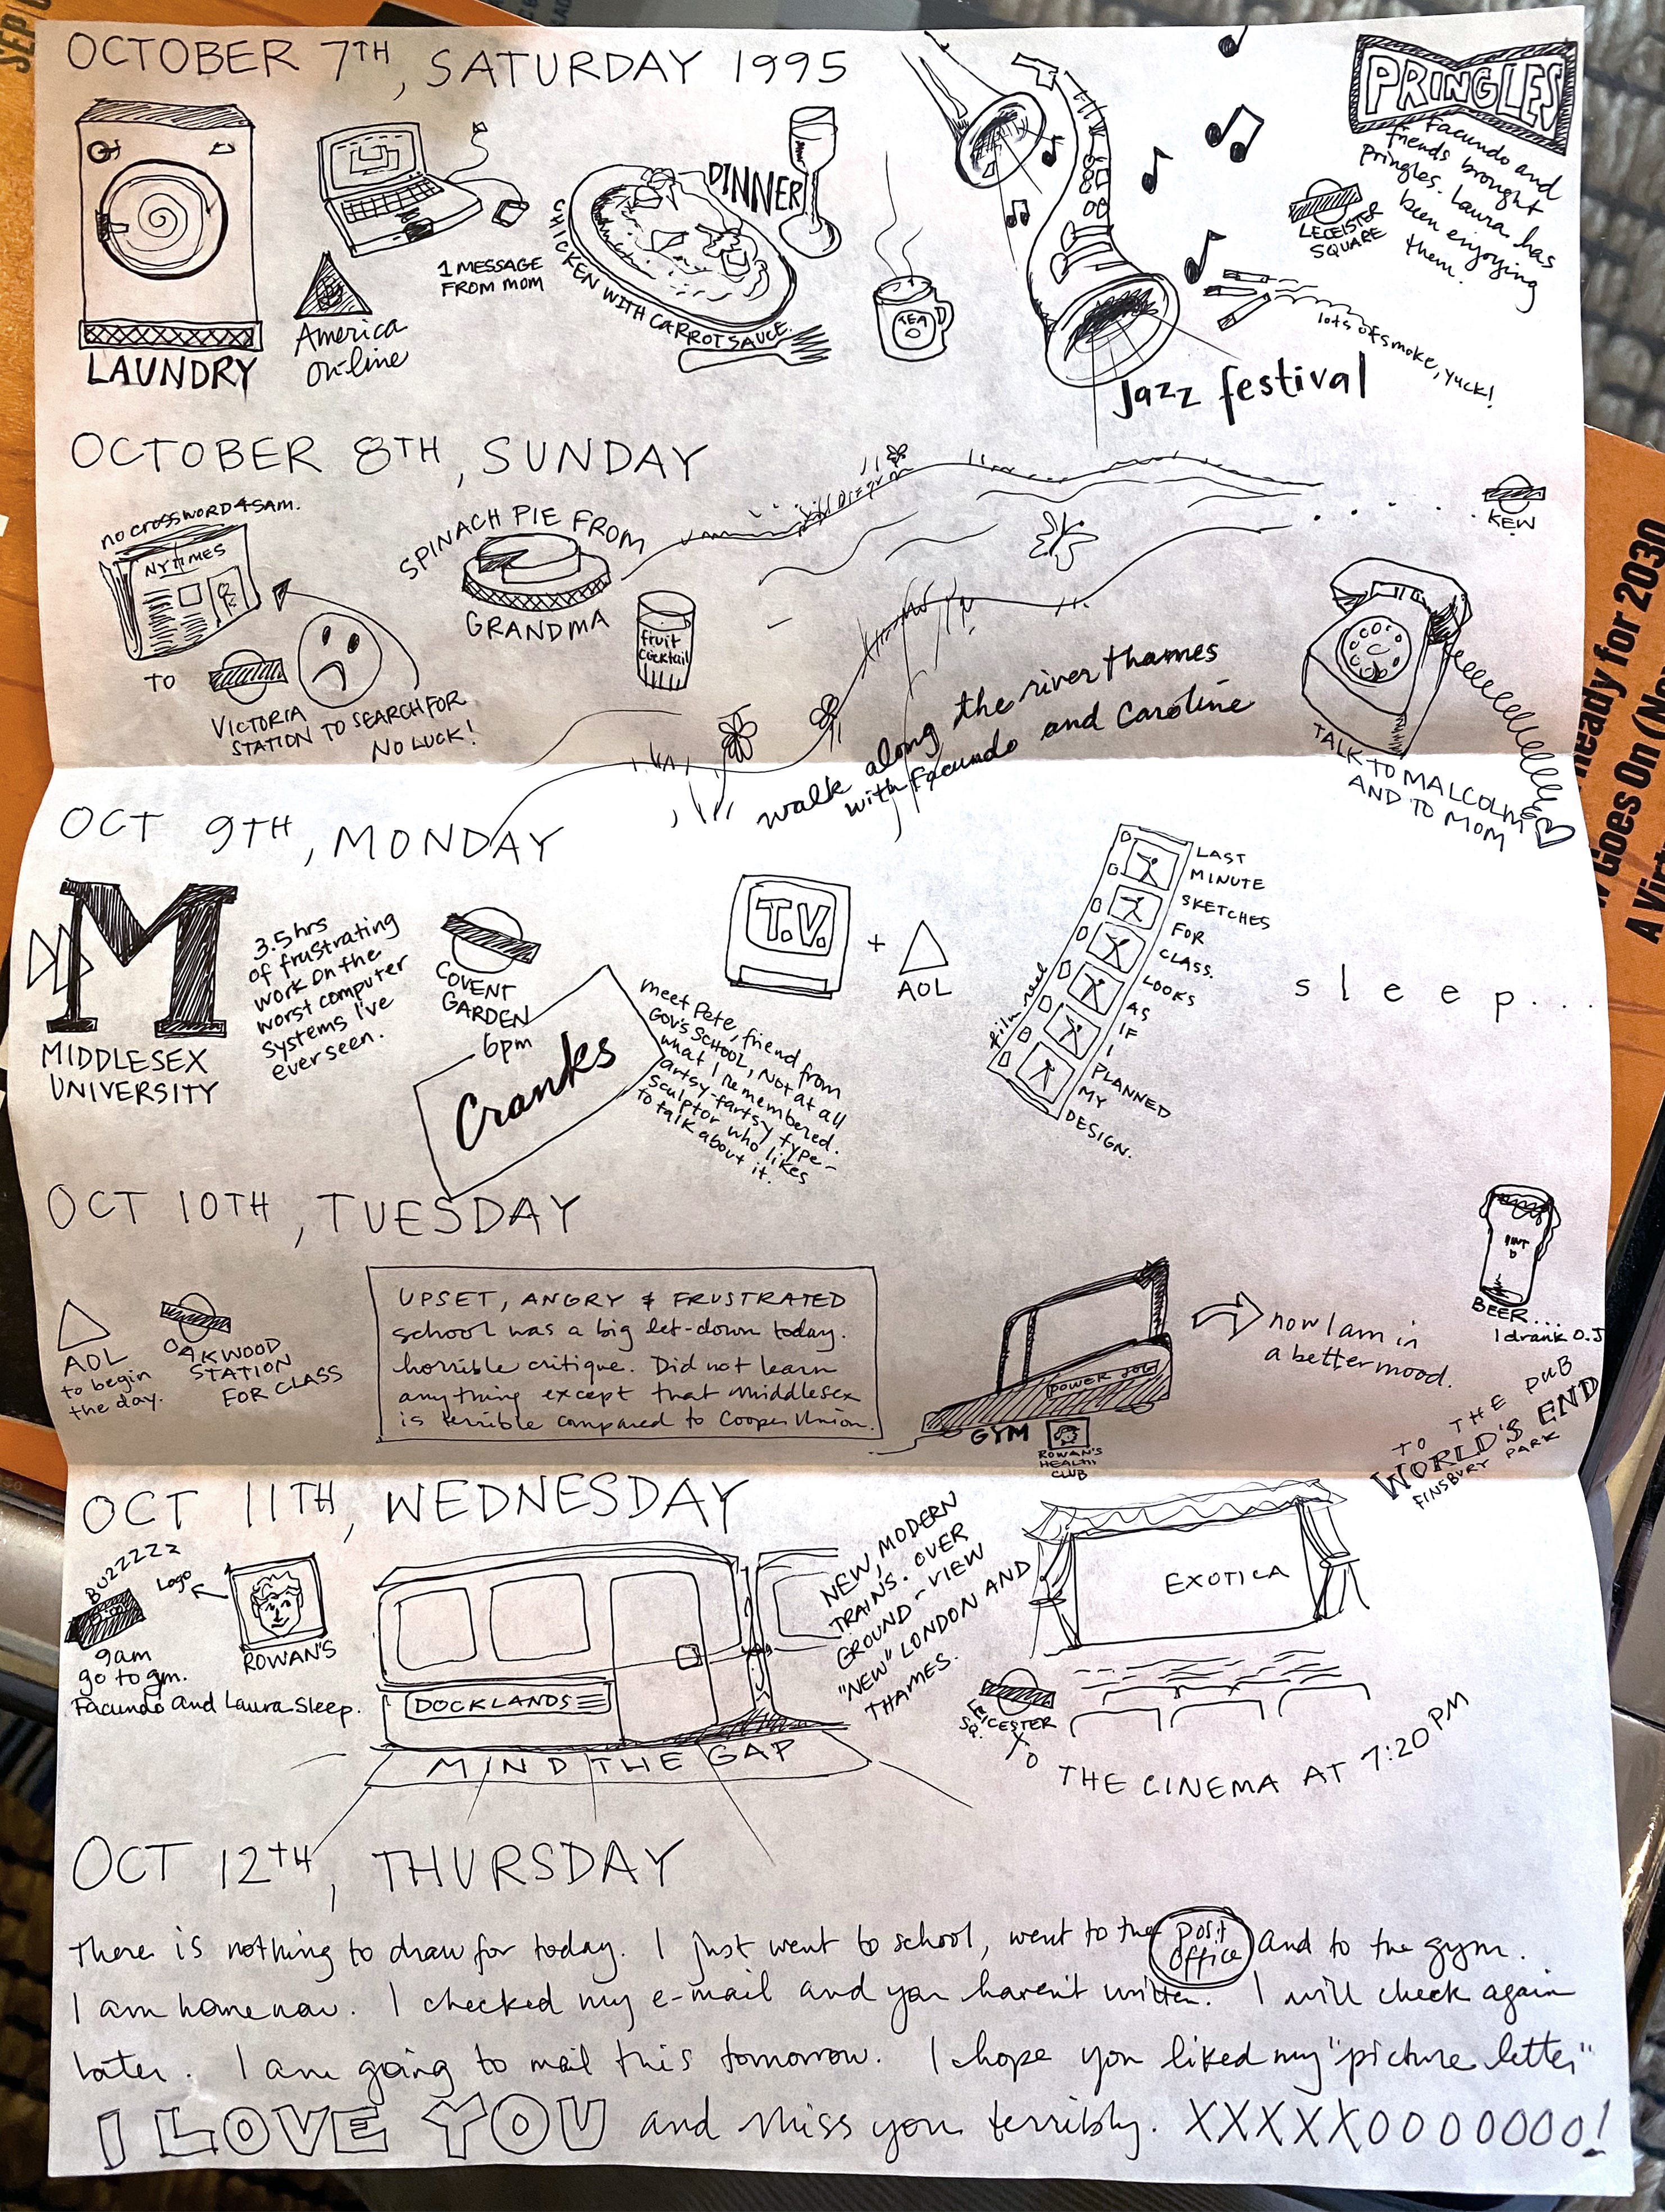 OCTOBER 7TH, SATURDAY 1995
LAUNDRY
America
On-line
1 MESSAGE
FROM MOM
DINNER
CHICKEN WITH CARROT SAUCE.
TEA
Jazz festival
PRINGLES
Facundo and
friends brought
Pringles. Laura has
been enjoying
them.
LECEISTER
SQUARE
lots of smoke, yuck!
OCTOBER 8TH, SUNDAY
no crossword 4 SAM.
NY TIMES
TO
VICTORIA
STATION TO SEARCH FOR
NO LUCK!
SPINACH PIE FROM
GRANDMA
fruit
cocktail
walk along the river thames
with Facundo and Caroline
KEW
TALK TO MALCOLM
AND TO MOM
OCT 9TH, MONDAY
M
MIDDLESEX
UNIVERSITY
3.5 hrs
of frustrating
work on the
worst computer
systems I've
ever seen.
COVENT
GARDEN
6pm
Cranks
meet Pete, friend from
GOV'S SCHOOL, Not at all
what I remembered.
artsy-fartsy type-
sculptor who likes
to talk about it.
T.V.
+
AOL
film reel
LAST
MINUTE
SKETCHES
FOR
CLASS.
LOOKS
AS
IF
I
PLANNED
MY
DESIGN.
sleep...
OCT 10TH, TUESDAY
AOL
to begin
the day.
OAKWOOD
STATION
FOR CLASS
UPSET, ANGRY & FRUSTRATED
school was a big let-down today.
horrible critique. Did not learn
anything except that Middlesex
is terrible compared to Cooper Union.
POWER JOG
GYM
ROWAN'S
HEALTH
CLUB
now I am in
a better mood.
BEER...
I drank O.J
TO THE PUB
WORLD'S END
FINSBURY PARK
OCT 11TH, WEDNESDAY
BUZZZZZ
9am
go to gym.
Facundo and Laura sleep.
Logo
ROWAN'S
DOCKLANDS
MIND THE GAP
NEW, MODERN
TRAINS. OVER
GROUND - VIEW
"NEW" LONDON AND
THAMES.
EXOTICA
LEICESTER
SQ.
TO THE CINEMA AT 7:20 PM
OCT 12TH, THURSDAY
There is nothing to draw for today. I just went to school, went to the post office and to the gym.
I am home now. I checked my e-mail and you haven't written. I will check again
later. I am going to mail this tomorrow. I hope you liked my "picture letter"
I LOVE YOU and miss you terribly. XXXXXOOOOOOO!
ready for 2030
Goes On (Nov
A Virt
SEP